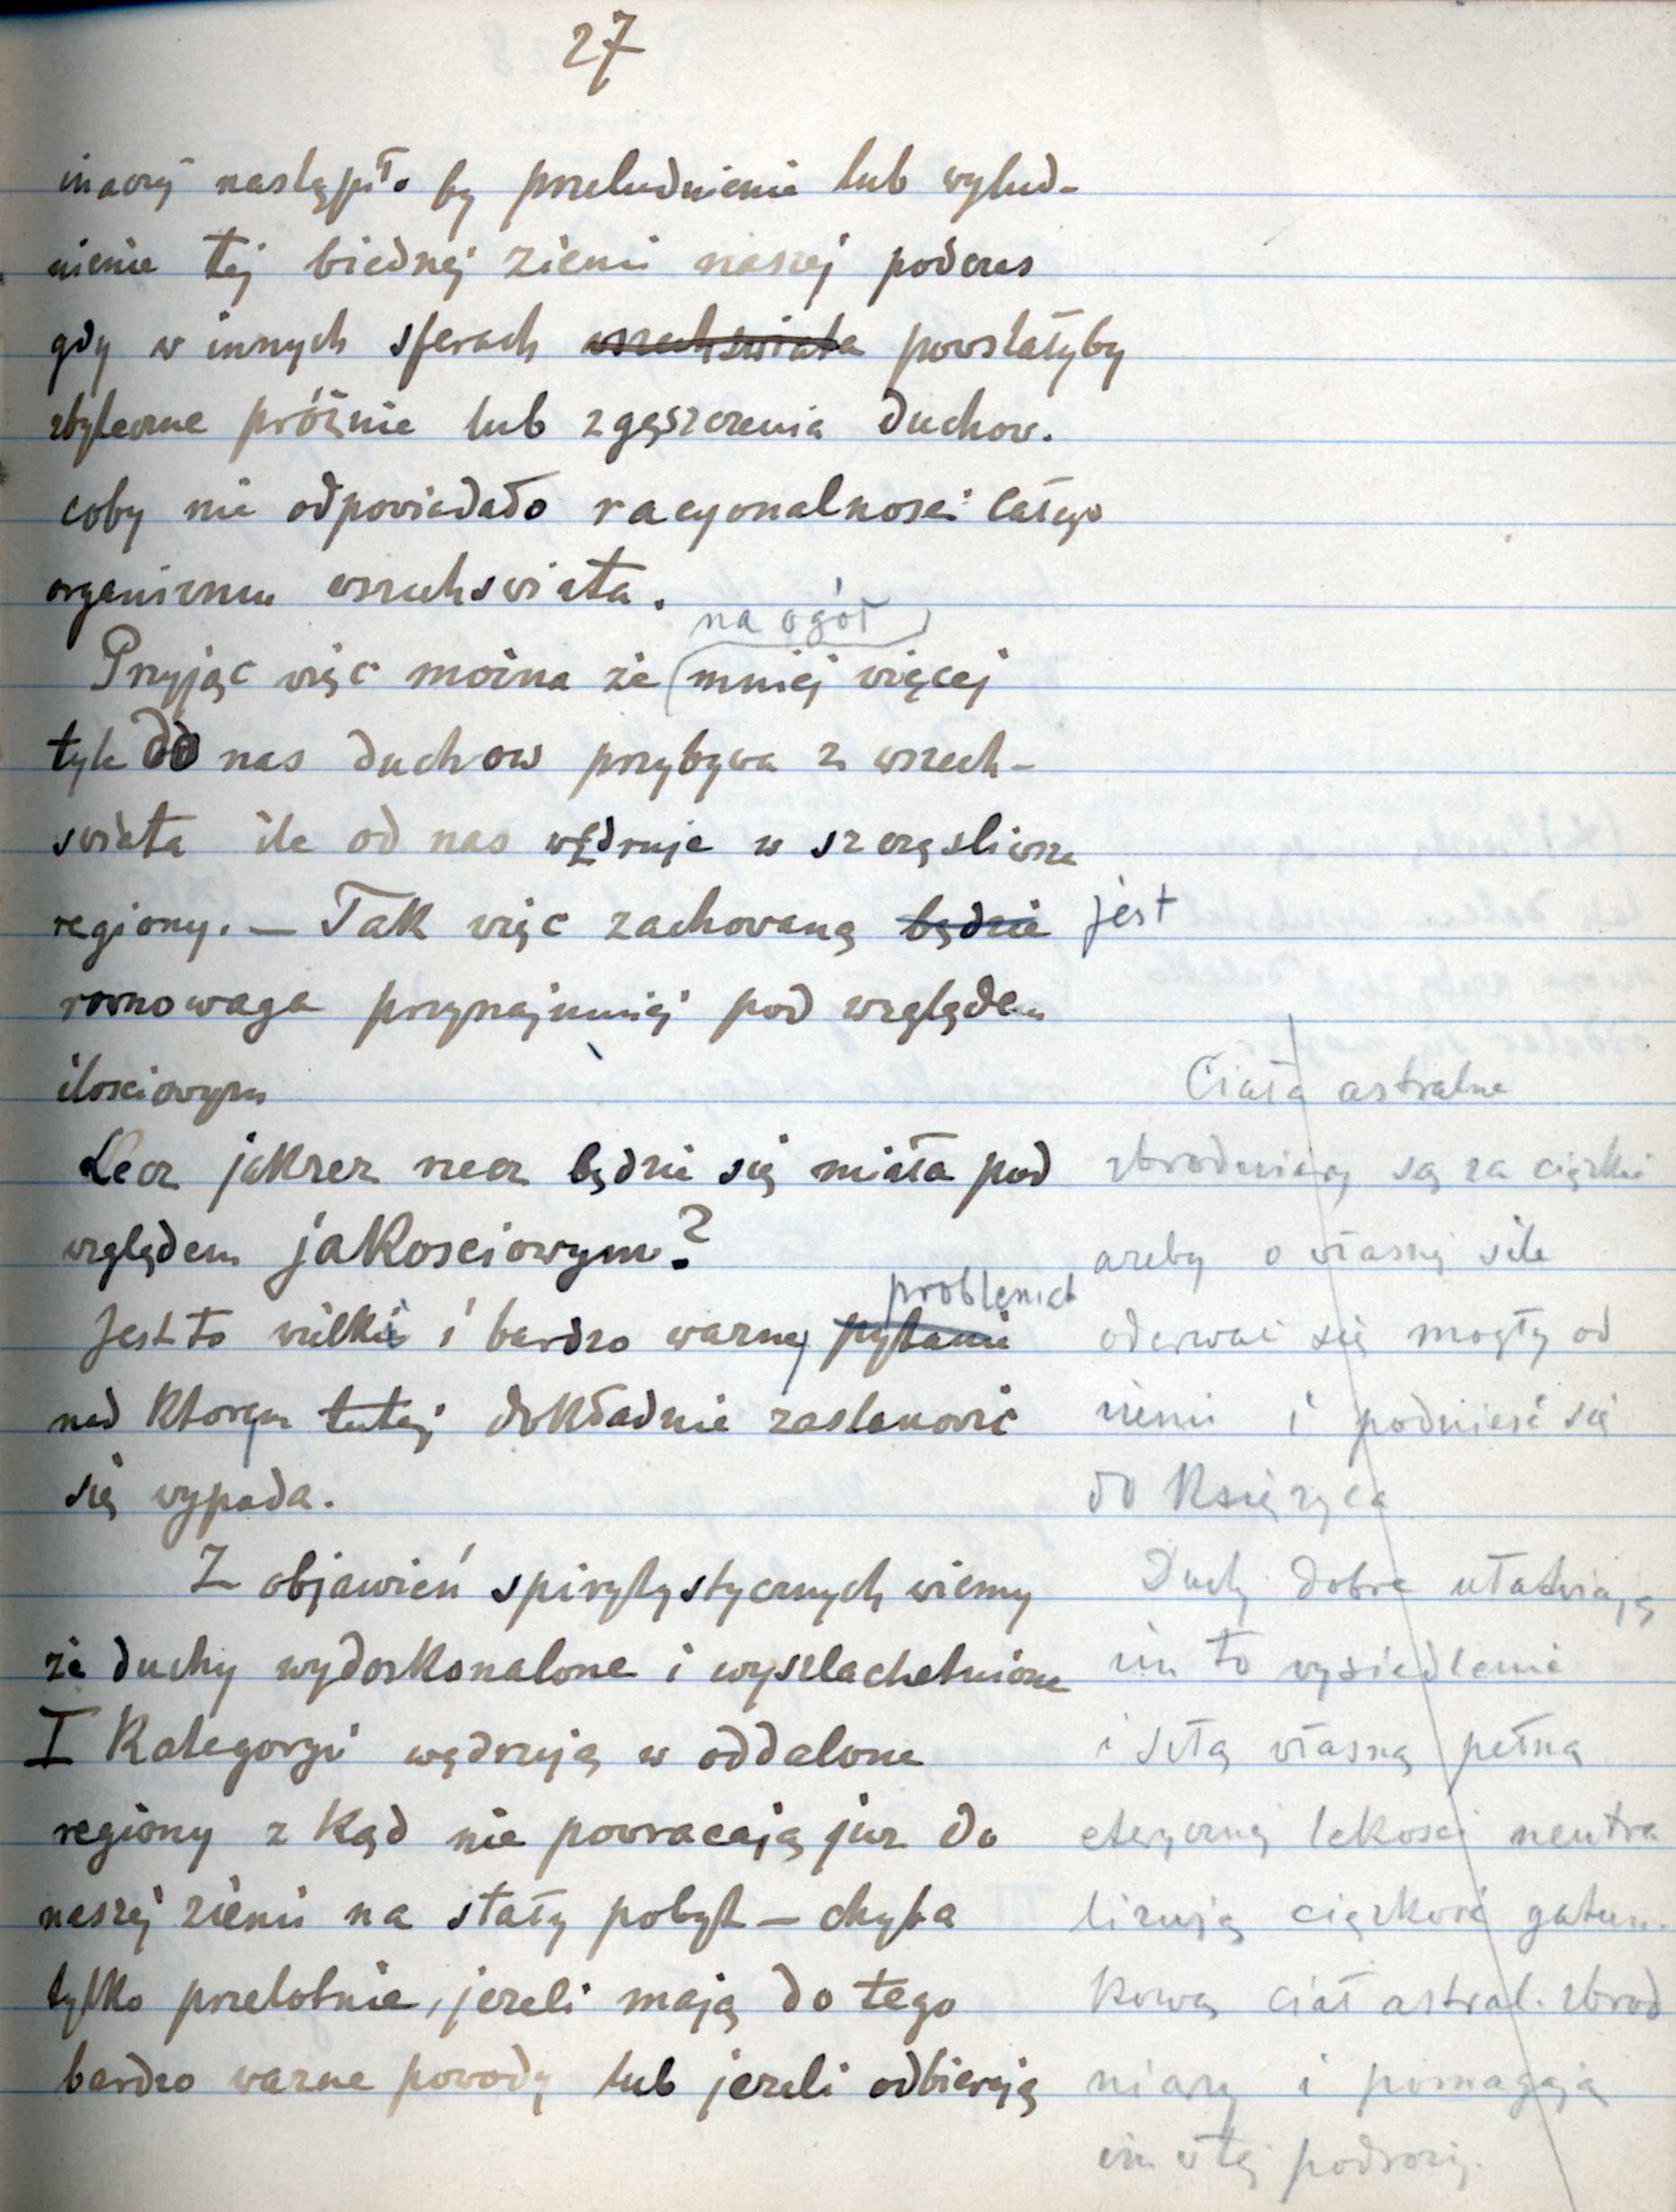 27
inaczej nastąpiło by przeludnienie lub wylud-
nienie tej biednej ziemi naszej podczas
gdy w innych sferach wszechświata powstałyby
zbyteczne próżnie lub zgęszczenia duchow.
coby nie odpowiadało racyonalnosci całego
organizmu wszechswiata.
na ogół
Przyjąć więc można że (mniej więcej
tyle do nas duchow przybywa z wszech-
swiata ile od nas wędruje w szczęsliwsze
regiony. — Tak więc zachowaną będzie jest
rownowaga przynajmniej pod względem
ilosciowym
Lecz jakżez rzecz będzie się miała pod
względem jakosciowym?
problemat
Jest to wielki i bardzo ważny pytanie
nad ktorym tutaj dokładnie zastanowić
się wypada.
Z objawień spirytystycznych wiemy
że duchy wydoskonalone i wyszlachetnione
I Kategoryi wędrują w oddalone
regiony z kąd nie powracają juz do
naszej ziemi na stały pobyt — chyba
tylko przelotnie, jezeli mają do tego
bardzo wazne powody lub jezeli odbierają
Ciała astralne
zbrodniarzy są za ciężkie
azeby o własnej sile
oderwać się mogły od
ziemi i podnieść się
do Księzyca
Duchy dobre ułatwiają
im to wysiedlenie
i siłą własną pełną
eterycznej lekosci neutra
lizują ciężkość gatun-
kową ciał astral. zbrod
niarzy i pomagają
im w tej podrozy.